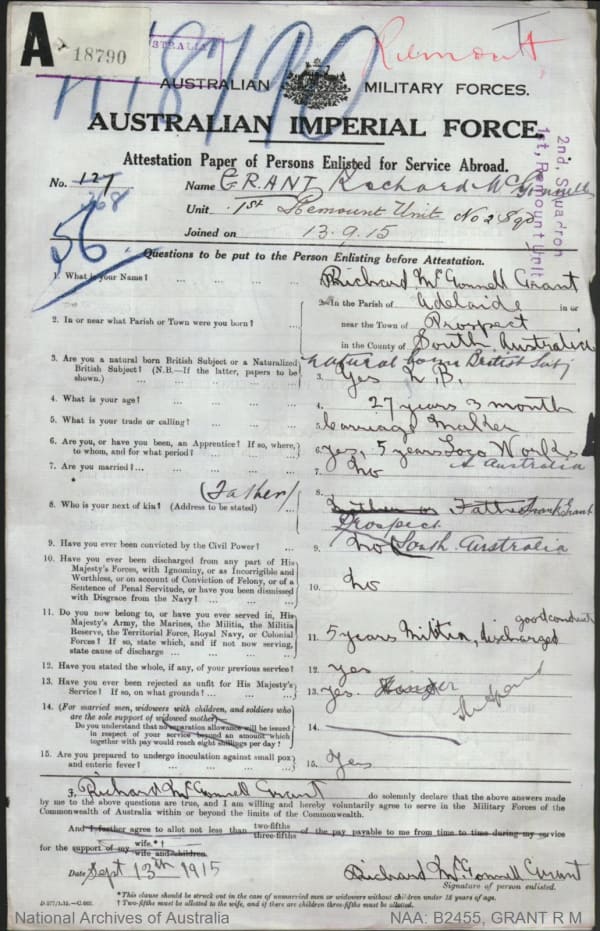 A
18790
STRALIA
18790
Remount
AUSTRALIAN MILITARY FORCES.
AUSTRALIAN IMPERIAL FORCE.
Attestation Paper of Persons Enlisted for Service Abroad.
No. 127 Name GRANT Richard McGonnell
368
Unit 1st Remount Unit No 2 Sqd
Joined on 13.9.15
2nd, Squadron
1st, Remount Unit
56
Questions to be put to the Person Enlisting before Attestation.
1. What is your Name? ... ... ... Richard McGonnell Grant
2. In or near what Parish or Town were you born? ... 2. In the Parish of Adelaide in or
near the Town of Prospect
in the County of South Australia
3. Are you a natural born British Subject or a Naturalized British Subject? (N.B.—If the latter, papers to be shown.) ... ... 3. natural born British Subj
Yes N.B.
4. What is your age? ... ... ... 4. 27 years 3 month
5. What is your trade or calling? ... ... 5. Carriage Maker
6. Are you, or have you been, an Apprentice? If so, where, to whom, and for what period? ... ... 6. yes, 5 years Loco Works
S Australia
7. Are you married? ... ... ... 7. No
8. Who is your next of kin? (Address to be stated) ... (Father) 8. Father Frank Grant
Prospect
South Australia
9. Have you ever been convicted by the Civil Power? ... 9. No
10. Have you ever been discharged from any part of His Majesty's Forces, with Ignominy, or as Incorrigible and Worthless, or on account of Conviction of Felony, or of a Sentence of Penal Servitude, or have you been dismissed with Disgrace from the Navy? ... ... 10. No
11. Do you now belong to, or have you ever served in, His Majesty's Army, the Marines, the Militia, the Militia Reserve, the Territorial Force, Royal Navy, or Colonial Forces? If so, state which, and if not now serving, state cause of discharge ... ... 11. 5 years Militia, discharged
good conduct
12. Have you stated the whole, if any, of your previous service? 12. yes
13. Have you ever been rejected as unfit for His Majesty's Service? If so, on what grounds? ... ... 13. yes.
14. (For married men, widowers with children, and soldiers who are the sole support of widowed mother)—
Do you understand that no separation allowance will be issued in respect of your service beyond an amount which together with pay would reach eight shillings per day? 14.
15. Are you prepared to undergo inoculation against small pox and enteric fever? ... ... ... 15. Yes
I, Richard McGonnell Grant do solemnly declare that the above answers made
by me to the above questions are true, and I am willing and hereby voluntarily agree to serve in the Military Forces of the
Commonwealth of Australia within or beyond the limits of the Commonwealth.
And I further agree to allot not less than two-fifths three-fifths of the pay payable to me from time to time during my service
for the support of my wife.*† wife and children.
Date Sept 13th 1915 Richard McGonnell Grant
Signature of person enlisted.
*This clause should be struck out in the case of unmarried men or widowers without children under 18 years of age.
† Two-fifths must be allotted to the wife, and if there are children three-fifths must be allotted.
National Archives of Australia NAA: B2455, GRANT R M